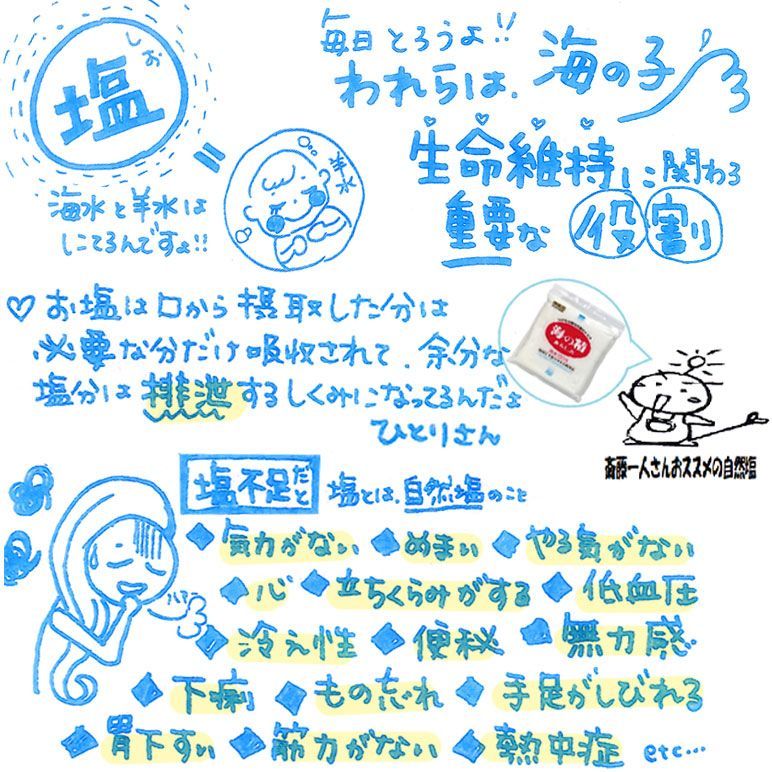 しお
塩
毎日とろうよ!!
われらは、海の子
海水と羊水は
にてるんですょ!!
羊水
生命維持に関わる
重要な役割
♡お塩は口から摂取した分は
必要な分だけ吸収されて、余分な
塩分は排泄するしくみになってるんだょ
ひとりさん
海の精
斎藤一人さんおススメの自然塩
塩不足だと 塩とは、自然塩のこと
◆気力がない ◆めまい ◆やる気がない
◆心 ◆立ちくらみがする ◆低血圧
ハァ
◆冷え性 ◆便秘 ◆無力感
◆下痢 ◆もの忘れ ◆手足がしびれる
◆胃下すい ◆筋力がない ◆熱中症 etc…